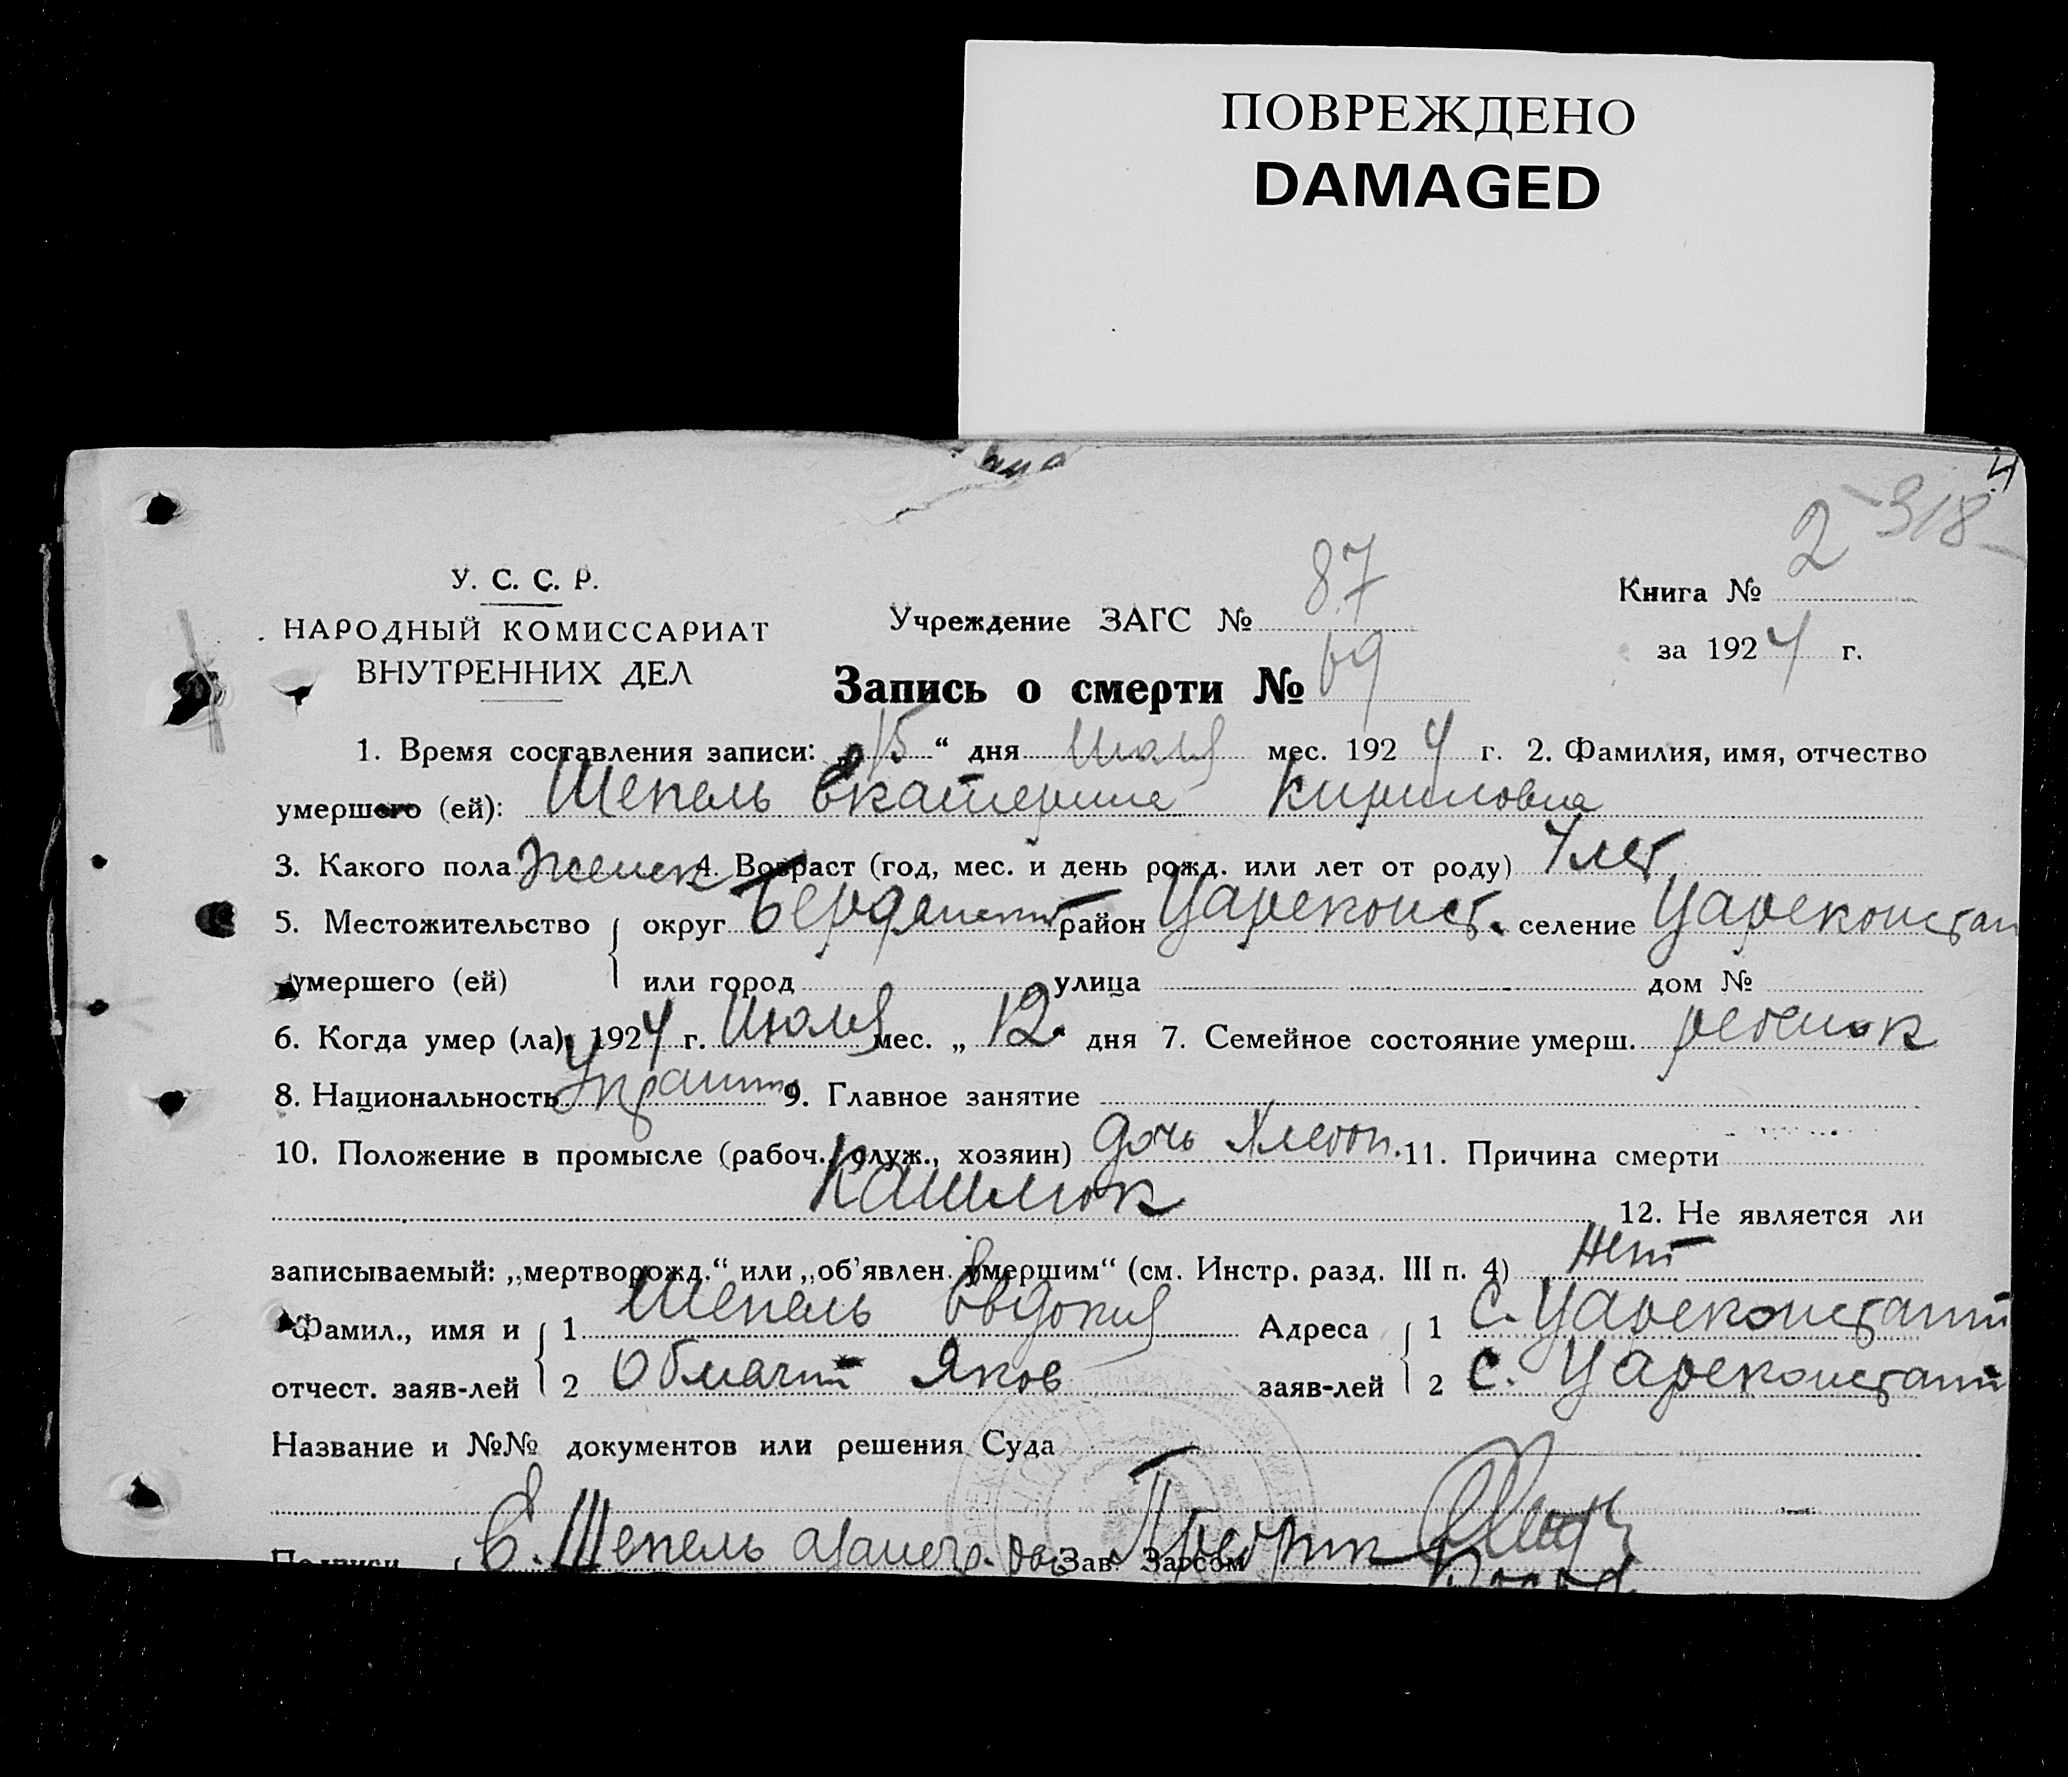 ПОВРЕЖДЕНО
DAMAGED
2 - 318
У. С. С. Р.
НАРОДНЫЙ КОМИССАРИАТ
ВНУТРЕННИХ ДЕЛ
Учреждение ЗАГС № 87
Книга № 2
за 1924 г.
Запись о смерти № 69
1. Время составления записи: „15“ дня Июля мес. 1924 г. 2. Фамилия, имя, отчество
умершего (ей): Шепель Екатерина Кириловна
3. Какого пола Женск 4. Возраст (год, мес. и день рожд. или лет от роду) 4 лет
5. Местожительство округ Бердянский район Цареконст. селение Цареконстан
умершего (ей) или город улица дом №
6. Когда умер (ла): 1924 г. Июля мес. „12“ дня 7. Семейное состояние умерш. ребенок
8. Национальность Украин 9. Главное занятие
10. Положение в промысле (рабоч., служ., хозяин) дочь Хлебоп. 11. Причина смерти
Кашлюк 12. Не является ли
записываемый: „мертворожд.“ или „об'явлен. умершим“ (см. Инстр. разд. III п. 4) Нет
Фамил., имя и 1 Шепель Евдокия Адреса 1 С. Цареконстант
отчест. заяв-лей 2 Яков заяв-лей 2 С. Цареконстант
Название и №№ документов или решения Суда
Подписи Е. Шепель Зав. Загсом